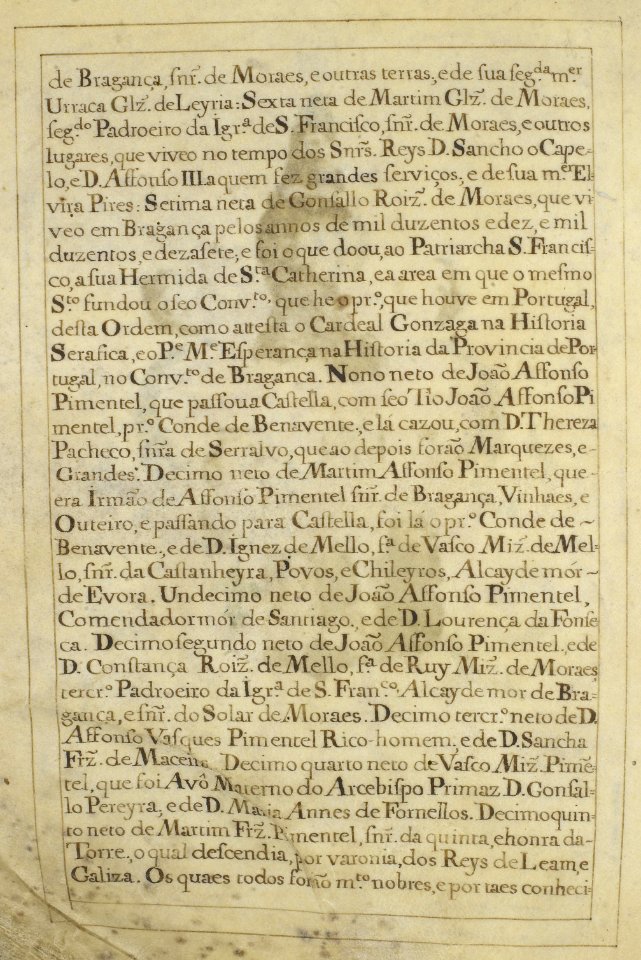 de Bragança, snr̃. de Moraes, e outras terras, e de sua seg.da m.er
Urraca Glz̃. de Leyria: Sexta neta de Martim Glz̃. de Moraes,
seg.do Padroeiro da Igr.a de S. Francisco, snr̃. de Moraes, e outros
lugares, que viveo no tempo dos Snr̃s. Reys D. Sancho o Cape-
lo, e D. Affonso III. a quem fez grandes serviços, e de sua m.er El-
vira Pires: Setima neta de Gonsallo Roiz̃. de Moraes, que vi-
veo em Bragança pelos annos de mil duzentos e dez, e mil
duzentos, e dezasete, e foi o que doou, ao Patriarcha S. Francis-
co, a sua Hermida de S.ta Catherina, e a area em que o mesmo
S.to fundou o seo Conv.to, que he o pr.o, que houve em Portugal,
desta Ordem, como attesta o Cardeal Gonzaga na Historia
Serafica, e o P.e M.e Esperança na Historia da Provincia de Por-
tugal, no Conv.to de Bragança. Nono neto de João Affonso
Pimentel, que passou a Castella, com seo Tio João Affonso Pi
mentel, pr.o Conde de Benavente, e la cazou, com D. Thereza
Pacheco, snr̃a de Serralvo, que ao depois forão Marquezes, e-
Grandes. Decimo neto de Martim Affonso Pimentel, que-
era Irmão de Affonso Pimentel snr̃. de Bragança, Vinhaes, e
Outeiro, e passando para Castella, foi lá o pr.o Conde de ~
Benavente, e de D. Ignez de Mello, f.a de Vasco Miz̃. de Mel-
lo, snr̃. da Castanheyra, Povos, e Chileyros, Alcayde mór ~
de Evora. Undecimo neto de João Affonso Pimentel,
Comendador mór de Santiago, e de D. Lourença da Fonse
ca. Decimo segundo neto de João Affonso Pimentel, e de
D. Constança Roiz̃. de Mello, f.a de Ruy Miz̃. de Moraes
tercr.o Padroeiro da Igr.a de S. Fran.co, Alcayde mor de Bra-
gança, e snr̃. do Solar de Moraes. Decimo tercr.o neto de D.
Affonso Vasques Pimentel Rico-homem, e de D. Sancha
Frz̃. de Macena. Decimo quarto neto de Vasco Miz̃. Pimẽ-
tel, que foi Avô Materno do Arcebispo Primaz D. Gonsal-
lo Pereyra, e de D. Maria Annes de Fornellos. Decimo quin-
to neto de Martim Frz̃. Pimentel, snr̃. da quinta, e honra da-
Torre, o qual descendia, por varonia, dos Reys de Leam, e
Galiza. Os quaes todos forão m.to nobres, e por taes conheci-